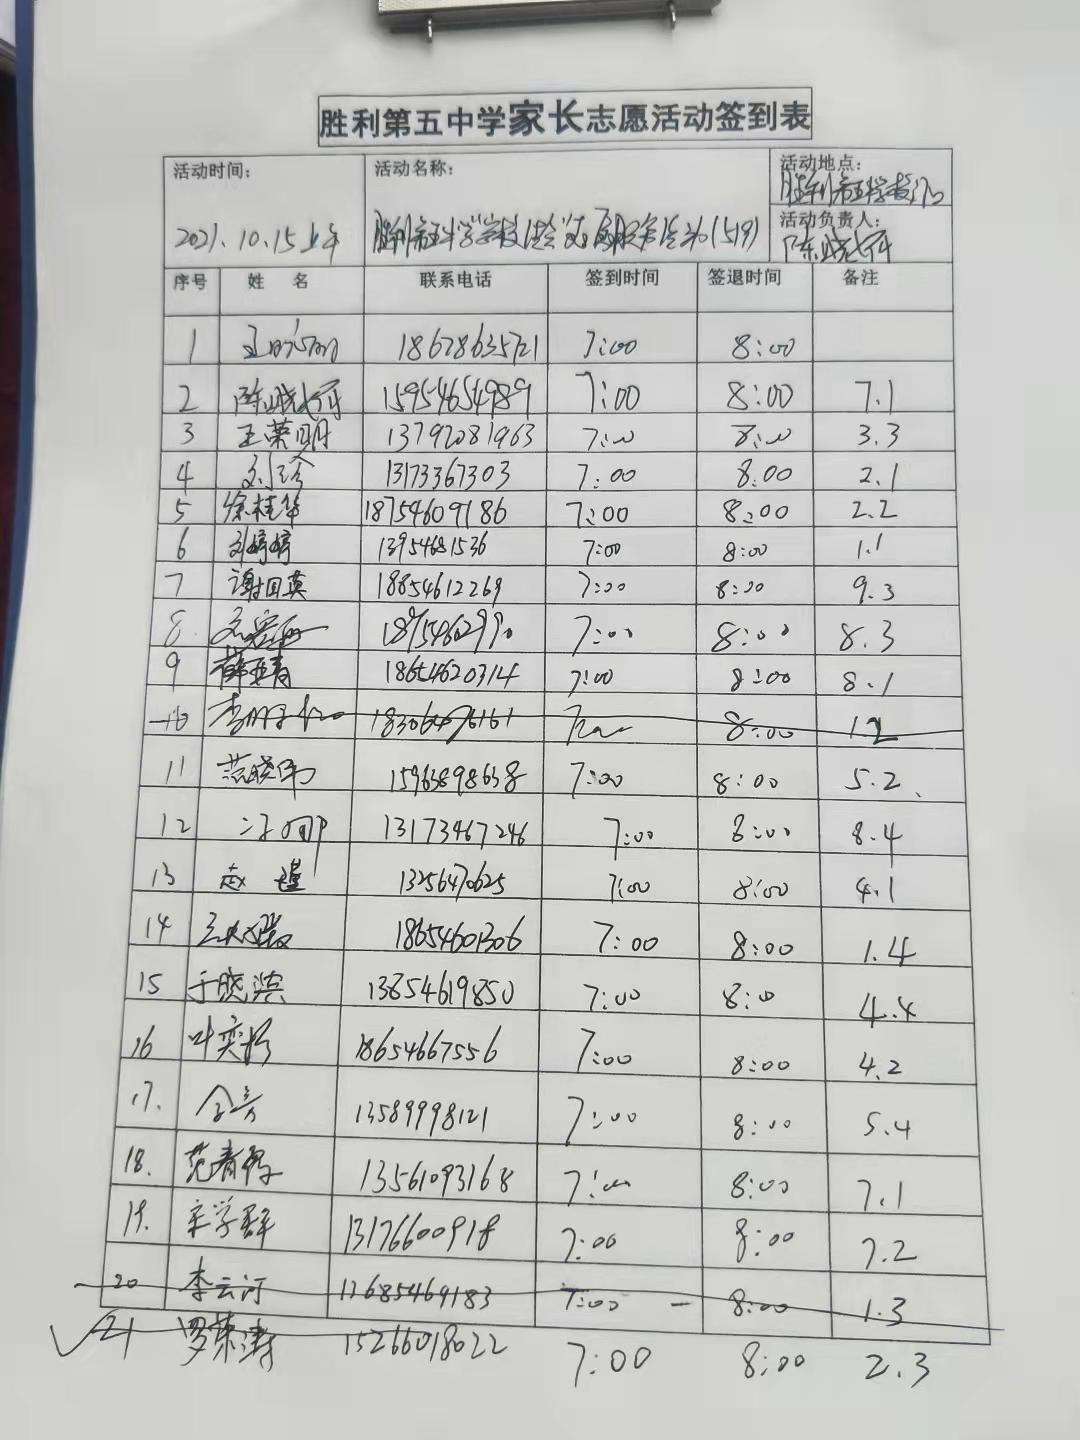 胜利第五中学家长志愿活动签到表
活动时间： 活动名称： 活动地点：
胜利第五中学校门口
2021.10.15上午 胜利第五中学学校 (519) 活动负责人：
陈晓
序号 姓 名 联系电话 签到时间 签退时间 备注
1 王 18678635721 7:00 8:00
2 陈晓 15954654989 7:00 8:00 7.1
3 王荣明 13792081963 7:00 8:00 3.3
4 刘珍 13173367303 7:00 8:00 2.1
5 徐桂华 18754609186 7:00 8:00 2.2
6 刘婷婷 13954681536 7:00 8:00 1.1
7 谢国英 18854612269 7:00 8:00 9.3
8 7:00 8:00 8.3
9 薛亚青 18654620314 7:00 8:00 8.1
10 李 8:00 1.2
11 范晓伟 15963898638 7:00 8:00 5.2
12 13173467246 7:00 8:00 8.4
13 赵 13256470625 7:00 8:00 4.1
14 18654601306 7:00 8:00 1.4
15 于晓滨 13854619850 7:00 8:0 4.4
16 叶奕杉 18654667556 7:00 8:00 4.2
17. 13589998121 7:00 8:00 5.4
18. 范春 13561093168 7:00 8:00 7.1
19. 宋学群 13176600918 7:00 8:00 7.2
20 李云河 13685469183 7:00 8:00 1.3
21 罗荣涛 15266018022 7:00 8:00 2.3